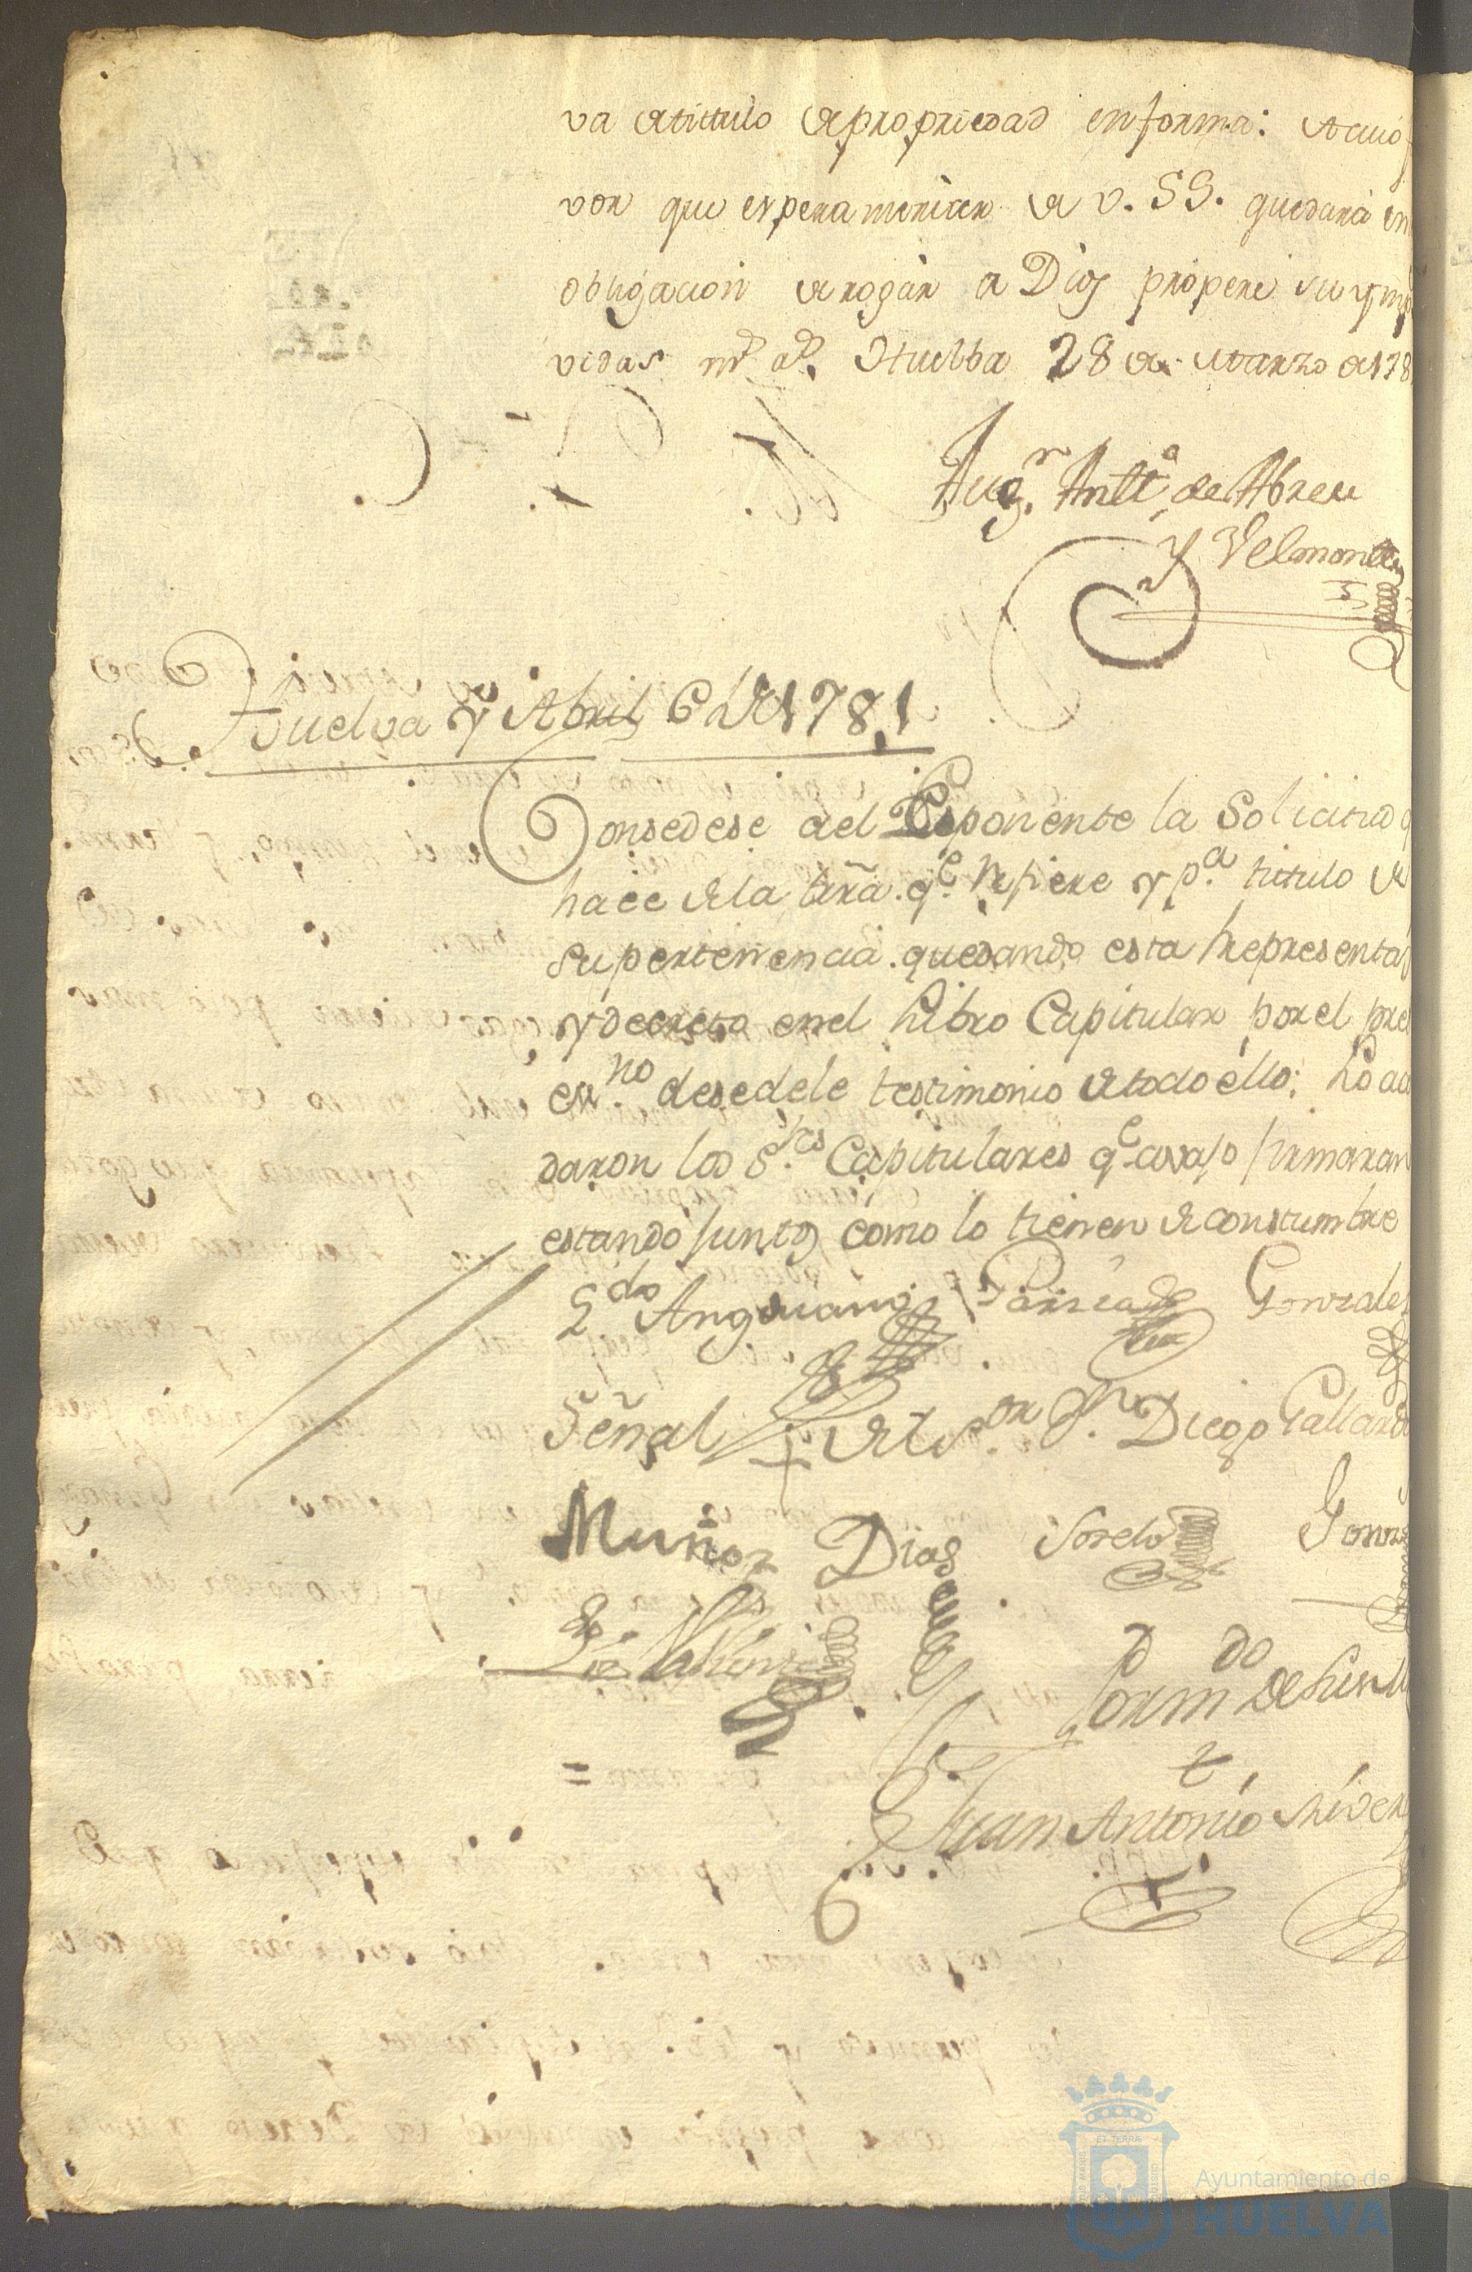 va de titulo de propriedad en forma: de cuio
vor que espera merecer de V. SS. quedará en
obligacion de rogàr a Dios prospere su ym
vidas ms. as. Huelba 28 de Marzo de 178
Augn. Antto. de Abreu
y Velmontte
Huelva y Abril 6 de 1781
Consedese a el Esponente la Solicitud q
hace de la tierra qe. refiere y pa. titulo de
su pertenencia quedando esta representa
y decreto en el Libro Capitular por el pre
esno. desedele testimonio de todo ello; Lo acor
daron los Sres. Capitulares qe. avajo firmaran
estando juntos como lo tienen de constumbre
Ldo. Anguiano Gonzales
Señal + del Sor. Dn. Diego Gallardo
Muñoz Dias Sorela Gonz
Juan Antonio River
Ayuntamiento de
HUELVA